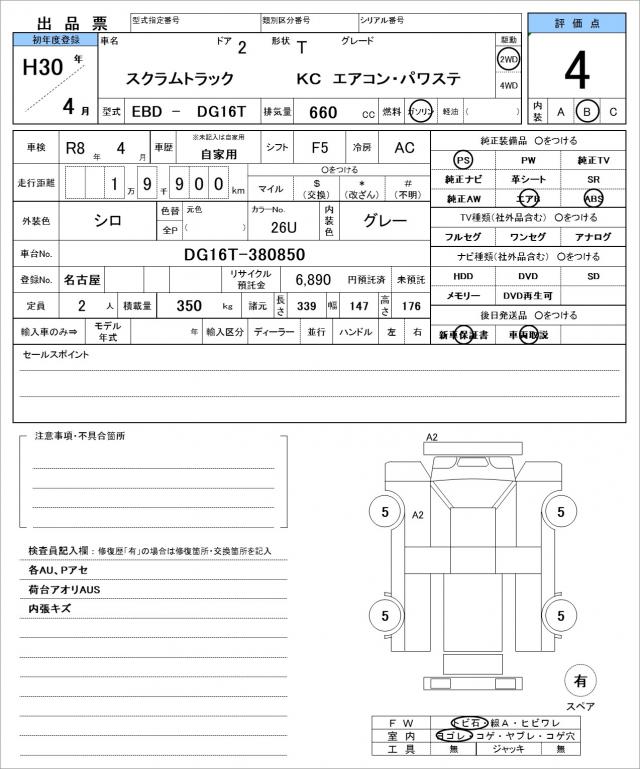 出品票 型式指定番号 類別区分番号 シリアル番号 評価点
初年度登録 車名 ドア 2 形状 T グレード 駆動
H30 年 スクラムトラック KC エアコン・パワステ 2WD 4
4WD
4 月 型式 EBD － DG16T 排気量 660 CC 燃料 ガソリン 軽油 ( ) 内装 A B C
車検 R8 年 4 月 車歴 ※未記入は自家用 自家用 シフト F5 冷房 AC 純正装備品 〇をつける
PS PW 純正TV
走行距離 1 万 9 千 9 0 0 km 〇をつける
マイル $ (交換) * (改ざん) # (不明) 純正ナビ 革シート SR
純正AW エアB ABS
外装色 シロ 色替 元色 カラーNo. 内装色 グレー TV種類(社外品含む) 〇をつける
全P ( ) 26U フルセグ ワンセグ アナログ
車台No. DG16T-380850 ナビ種類(社外品含む) 〇をつける
登録No. 名古屋 リサイクル預託金 6,890 円預託済 未預託 HDD DVD SD
定員 2 人 積載量 350 kg 諸元 長さ 339 幅 147 高さ 176 メモリー DVD再生可
後日発送品 〇をつける
輸入車のみ⇒ モデル年式 年 輸入区分 ディーラー 並行 ハンドル 左 右 新車保証書 車両取説
セールスポイント
注意事項・不具合箇所
A2
5 A2 5
検査員記入欄：修復歴「有」の場合は修復箇所・交換箇所を記入
各AU、Pアセ
荷台アオリAUS
内張キズ
5 5
有
スペア
FW トビ石・線A・ヒビワレ
室内 ヨゴレ・コゲ・ヤブレ・コゲ穴
工具 無 ジャッキ 無